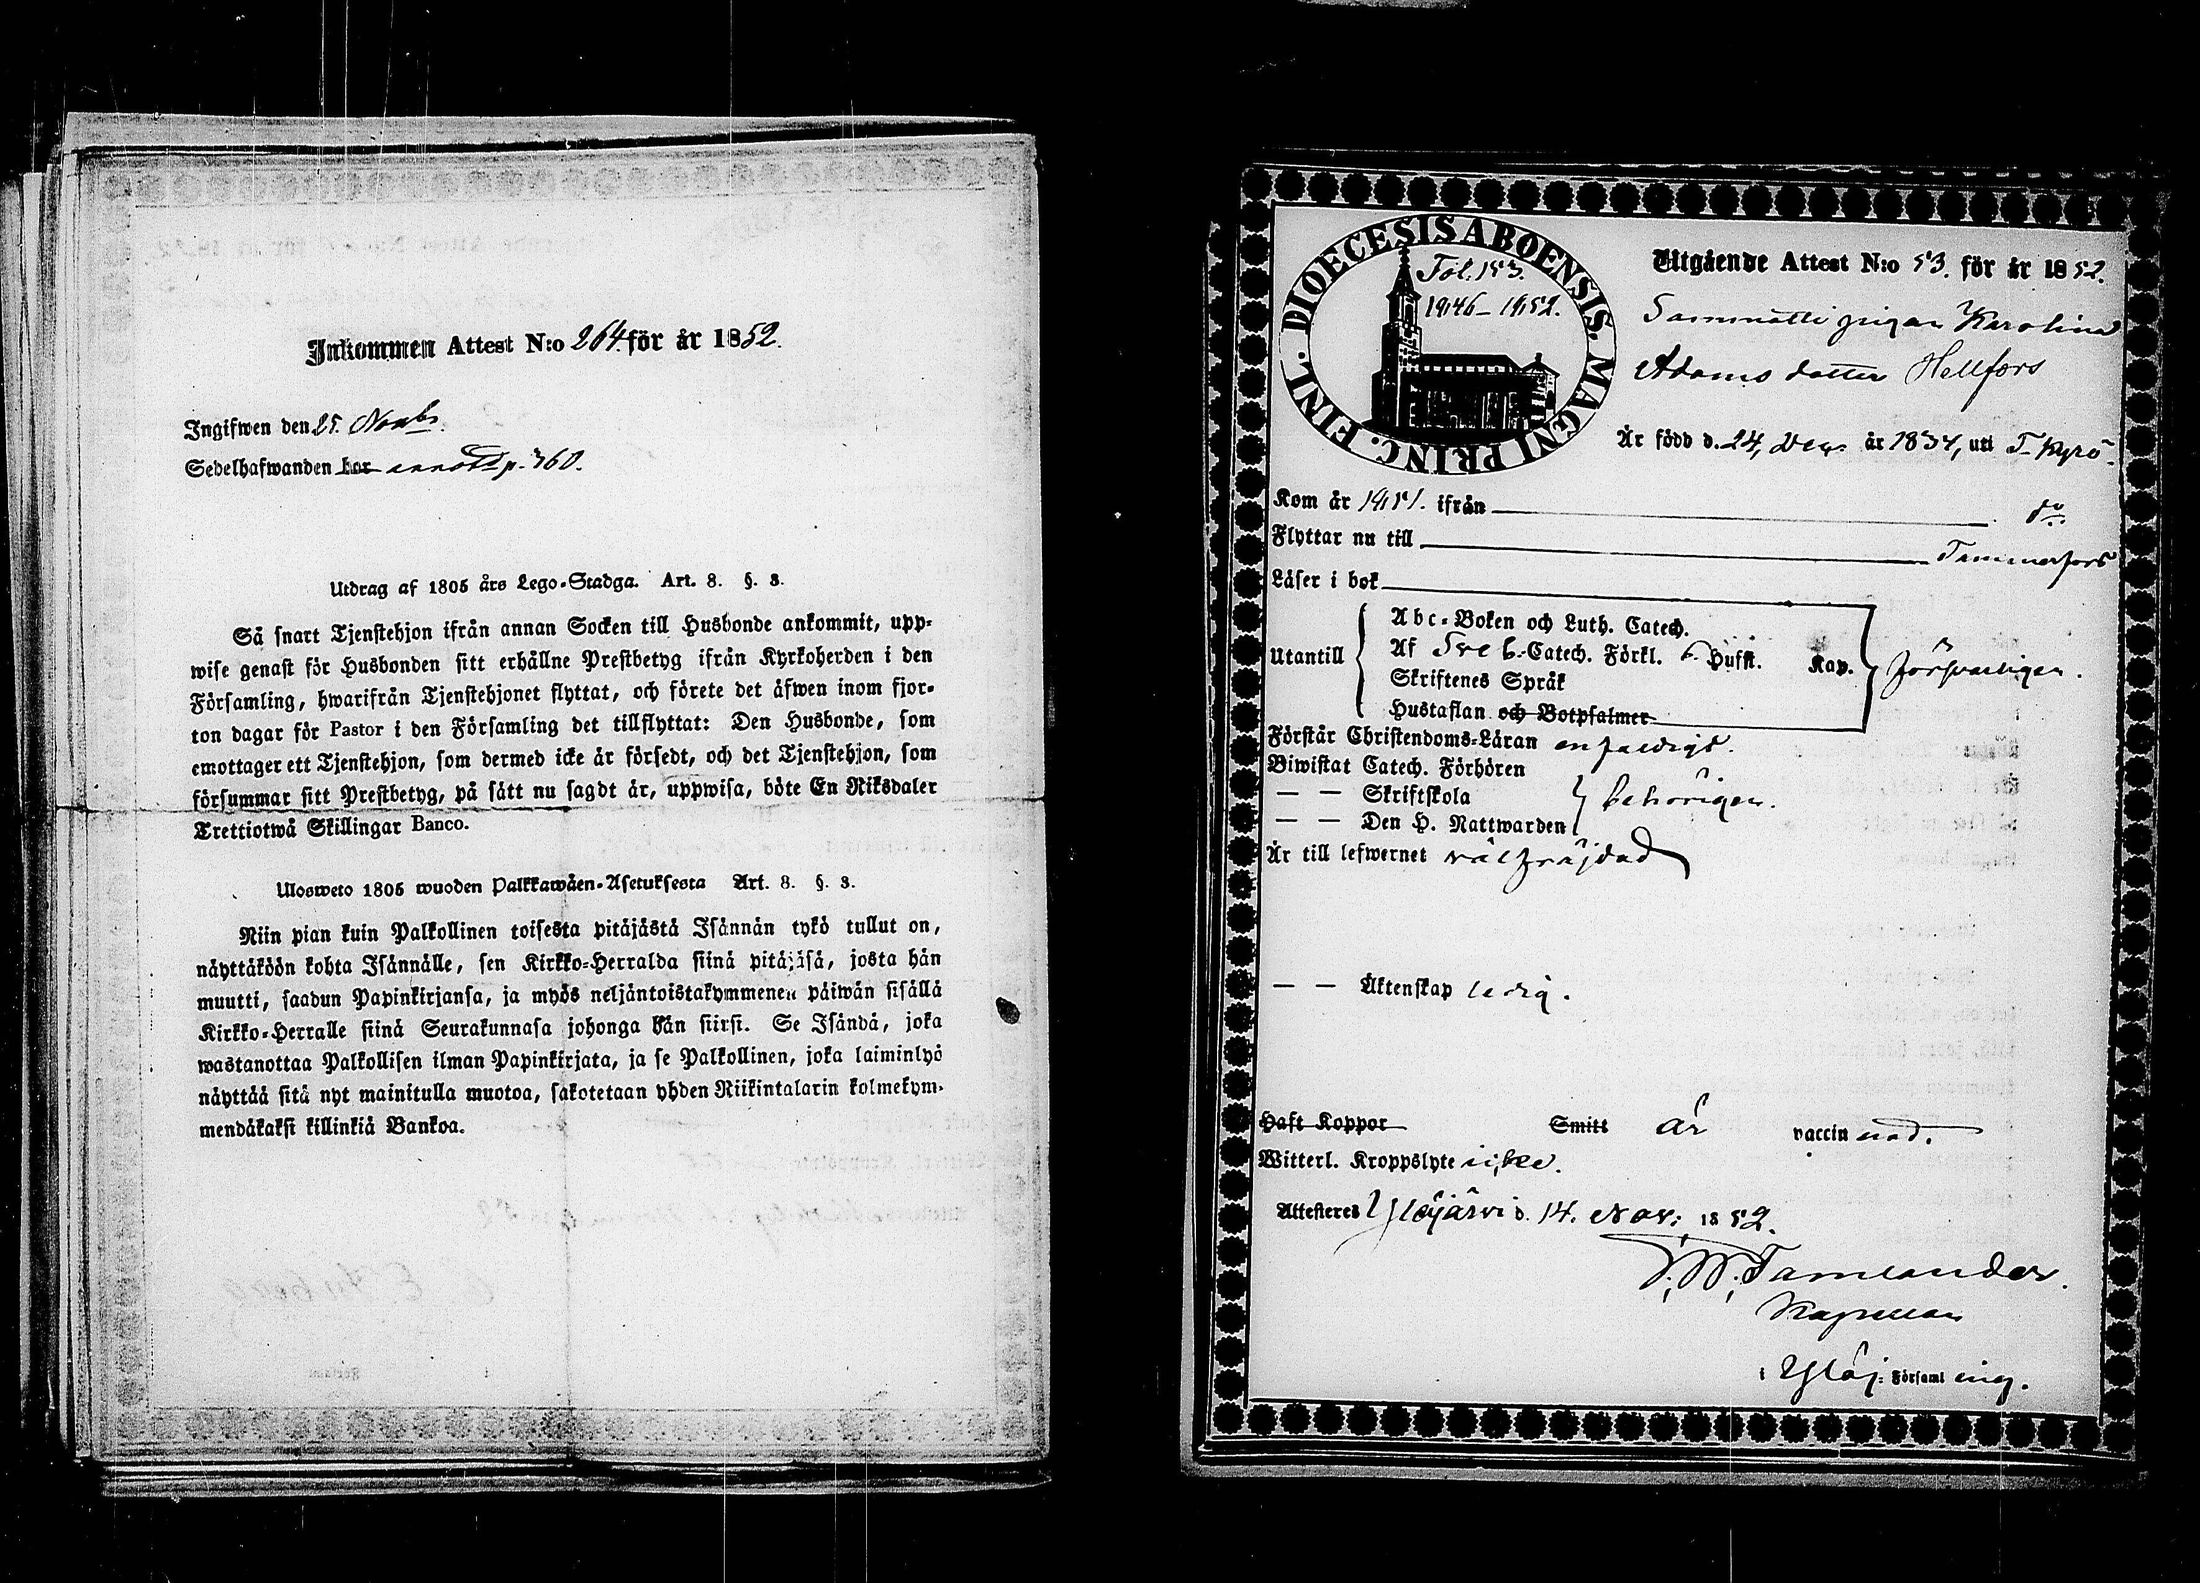 Inkommen Attest N:o 264 för år 1852.
Ingifwen den 25. Novbr.
Sedelhafwanden har annott p. 360.
Utdrag af 1805 års Lego-Stadga. Art. 8. §. 3.
Så snart Tjenstehjon ifrån annan Socken till Husbonde ankommit, upp-
wise genast för Husbonden sitt erhållne Prestbetyg ifrån Kyrkoherden i den
Församling, hwarifrån Tjenstehjonet flyttat, och förete det äfwen inom fjor-
ton dagar för Pastor i den Församling det tillflyttat: Den Husbonde, som
emottager ett Tjenstehjon, som dermed icke är försedt, och det Tjenstehjon, som
försummar sitt Prestbetyg, på sätt nu sagdt är, uppwisa, böte En Riksdaler
Trettiotwå Skillingar Banco.
Ulosweto 1805 wuoden Palkkawäen-Asetuksesta Art. 8. §. 3.
Niin pian kuin Palkollinen toisesta pitäjästä Isännän tykö tullut on,
näyttäköön kohta Isännälle, sen Kirkko-Herralda siinä pitäjäsä, josta hän
muutti, saadun Papinkirjansa, ja myös neljäntoistakymmenen päiwän sisällä
Kirkko-Herralle siinä Seurakunnasa johonga hän siirsi. Se Isändä, joka
wastanottaa Palkollisen ilman Papinkirjata, ja se Palkollinen, joka laiminlyö
näyttää sitä nyt mainitulla muotoa, sakotetaan yhden Riikintalarin kolmekym-
mendäkaksi killinkiä Bankoa.
DIOECESIS ABOENSIS. MAGNI PRINC. FINL.
Fol. 153.
1846–1852.
Utgående Attest N:o 53. för år 1852.
pigan Karolina
Adams dotter Hellfors
Är född d. 24, Dec. år 1834, uti T-Kyrö.
Kom år 1851. ifrån do.
Flyttar nu till Tammerfors
Läser i bok
Utantill
Abc-Boken och Luth. Catech.
Af Sveb. Catech. Förkl. 6. Hufst. Kap.
Skriftenes Språk
Hustaflan och Botpsalmer
försvarligen.
Förstår Christendoms-Läran enfaldigt.
Biwistat Catech. Förhören
— — Skriftskola
— — Den H. Nattwarden
behörigen.
Är till lefwernet välfräjdad
— — Äktenskap ledig.
Haft Koppor Smitt är vaccinerad.
Witterl. Kroppslyte icke.
Attesteres Ylöjärvi d. 14. Nov. 1852.
Tamlander.
Kapellan
i Ylöj: Församling.